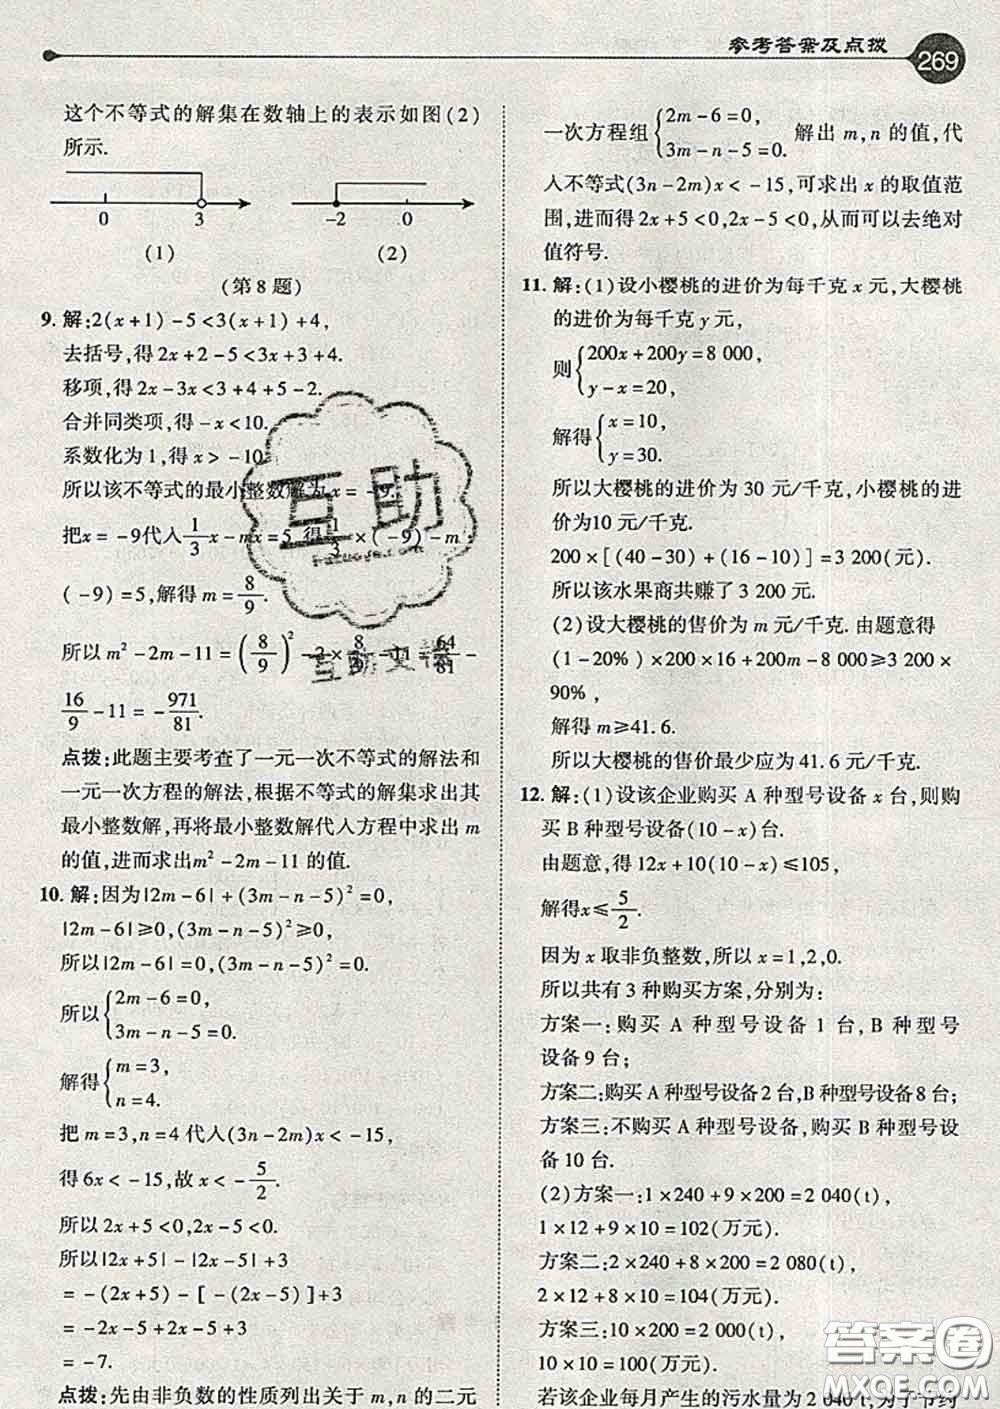 参考答案及点拨
269
这个不等式的解集在数轴上的表示如图(2)
所示.
0 3
-2 0
(1)
(2)
(第8题)
9. 解:2(x+1)-5<3(x+1)+4,
去括号,得2x+2-5<3x+3+4.
移项,得2x-3x<3+4+5-2.
合并同类项,得-x<10.
系数化为1,得x>-10.
所以该不等式的最小整数解为x=-9.
把x=-9代入1/3x-mx=5,得1/3×(-9)-m·
(-9)=5,解得m=8/9.
所以m²-2m-11=(8/9)²-2×8/9-11=64/81-
16/9-11=-971/81.
点拨:此题主要考查了一元一次不等式的解法和
一元一次方程的解法,根据不等式的解集求出其
最小整数解,再将最小整数解代入方程中求出m
的值,进而求出m²-2m-11的值.
10. 解:因为|2m-6|+(3m-n-5)²=0,
|2m-6|≥0,(3m-n-5)²≥0,
所以|2m-6|=0,(3m-n-5)²=0.
所以{2m-6=0,
3m-n-5=0.
解得{m=3,
n=4.
把m=3,n=4代入(3n-2m)x<-15,
得6x<-15,故x<-5/2.
所以2x+5<0,2x-5<0,
所以|2x+5|-|2x-5|+3
=-(2x+5)-[-(2x-5)]+3
=-2x-5+2x-5+3
=-7.
点拨:先由非负数的性质列出关于m,n的二元
一次方程组{2m-6=0,
3m-n-5=0. 解出m,n的值,代
入不等式(3n-2m)x<-15,可求出x的取值范
围,进而得2x+5<0,2x-5<0,从而可以去绝对
值符号.
11. 解:(1)设小樱桃的进价为每千克x元,大樱桃
的进价为每千克y元,
则{200x+200y=8 000,
y-x=20,
解得{x=10,
y=30.
所以大樱桃的进价为30元/千克,小樱桃的进
价为10元/千克.
200×[(40-30)+(16-10)]=3 200(元).
所以该水果商共赚了3 200元.
(2)设大樱桃的售价为m元/千克.由题意得
(1-20%)×200×16+200m-8 000≥3 200×
90%,
解得m≥41.6.
所以大樱桃的售价最少应为41.6元/千克.
12. 解:(1)设该企业购买A种型号设备x台,则购
买B种型号设备(10-x)台.
由题意,得12x+10(10-x)≤105,
解得x≤5/2.
因为x取非负整数,所以x=1,2,0.
所以共有3种购买方案,分别为:
方案一:购买A种型号设备1台,B种型号
设备9台;
方案二:购买A种型号设备2台,B种型号设备8台;
方案三:不购买A种型号设备,购买B种型号设
备10台.
(2)方案一:1×240+9×200=2 040(t),
1×12+9×10=102(万元).
方案二:2×240+8×200=2 080(t),
2×12+8×10=104(万元).
方案三:10×200=2 000(t),
10×10=100(万元).
若该企业每月产生的污水量为2 040 t,为了节约
互助
互助文档
答案圈
MXQE.COM